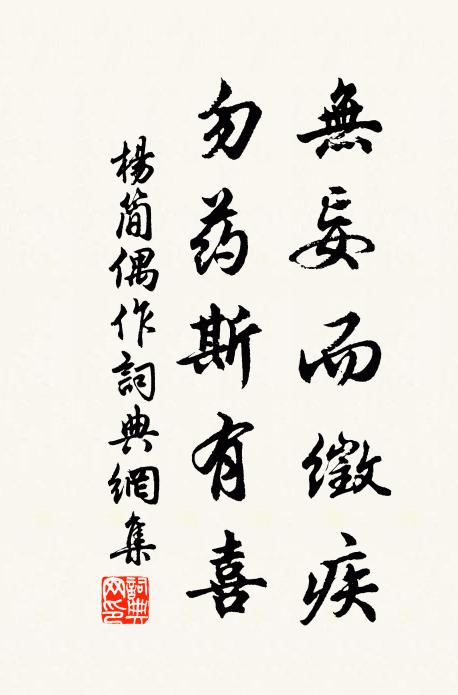 無妄而徵疾
勿药斯有喜
楊簡偶作詞典網集
詞典网印